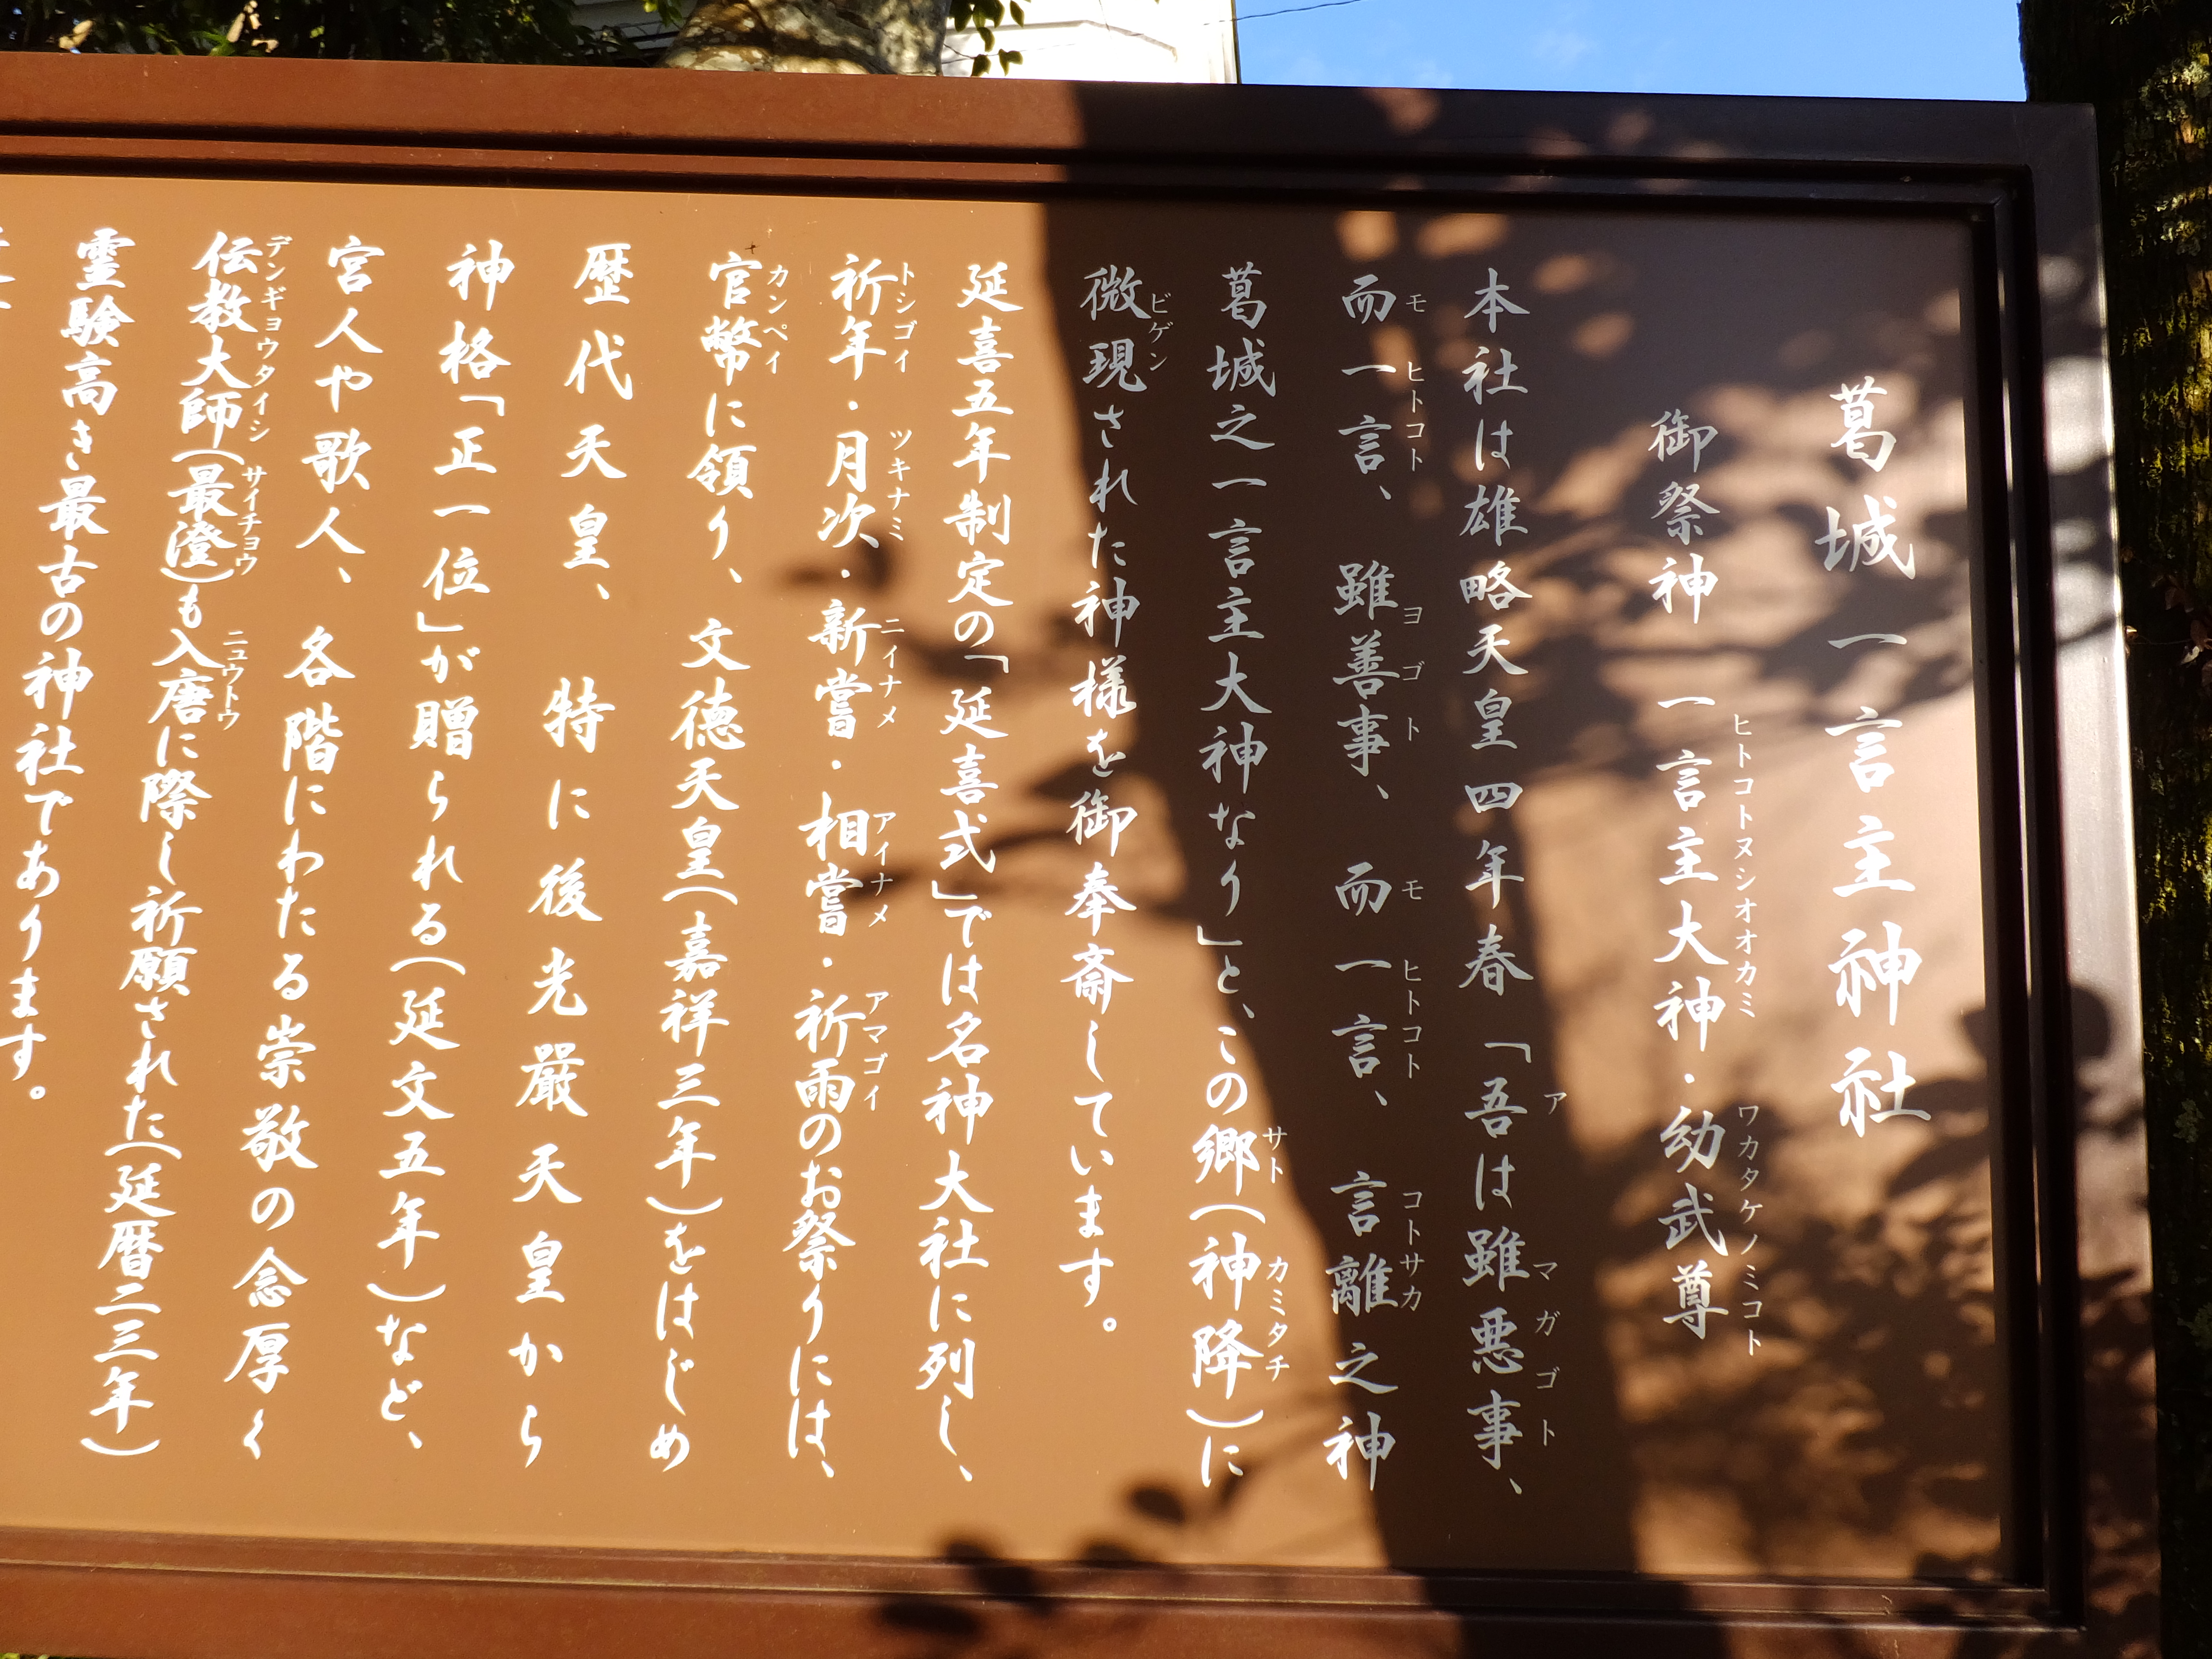 葛城一言主神社
御祭神 一言主大神・幼武尊
ヒトコトヌシオオカミ ワカタケノミコト
本社は雄略天皇四年春「吾は雖悪事、
ア マガゴト
而一言、雖善事、而一言、言離之神
モ ヒトコト ヨゴト モ ヒトコト コトサカ
葛城之一言主大神なり」と、この郷(神降)に
サト カミタチ
微現された神様を御奉斎しています。
ビゲン
延喜五年制定の「延喜式」では名神大社に列し、
祈年・月次・新嘗・相嘗・祈雨のお祭りには、
トシゴイ ツキナミ ニイナメ アイナメ アマゴイ
官幣に領り、文徳天皇(嘉祥三年)をはじめ
カンペイ
歴代天皇、特に後光厳天皇から
神格「正一位」が贈られる(延文五年)など、
宮人や歌人、各階にわたる崇敬の念厚く
伝教大師(最澄)も入唐に際し祈願された(延暦二三年)
デンギョウタイシ サイチョウ ニュウトウ
霊験高き最古の神社であります。